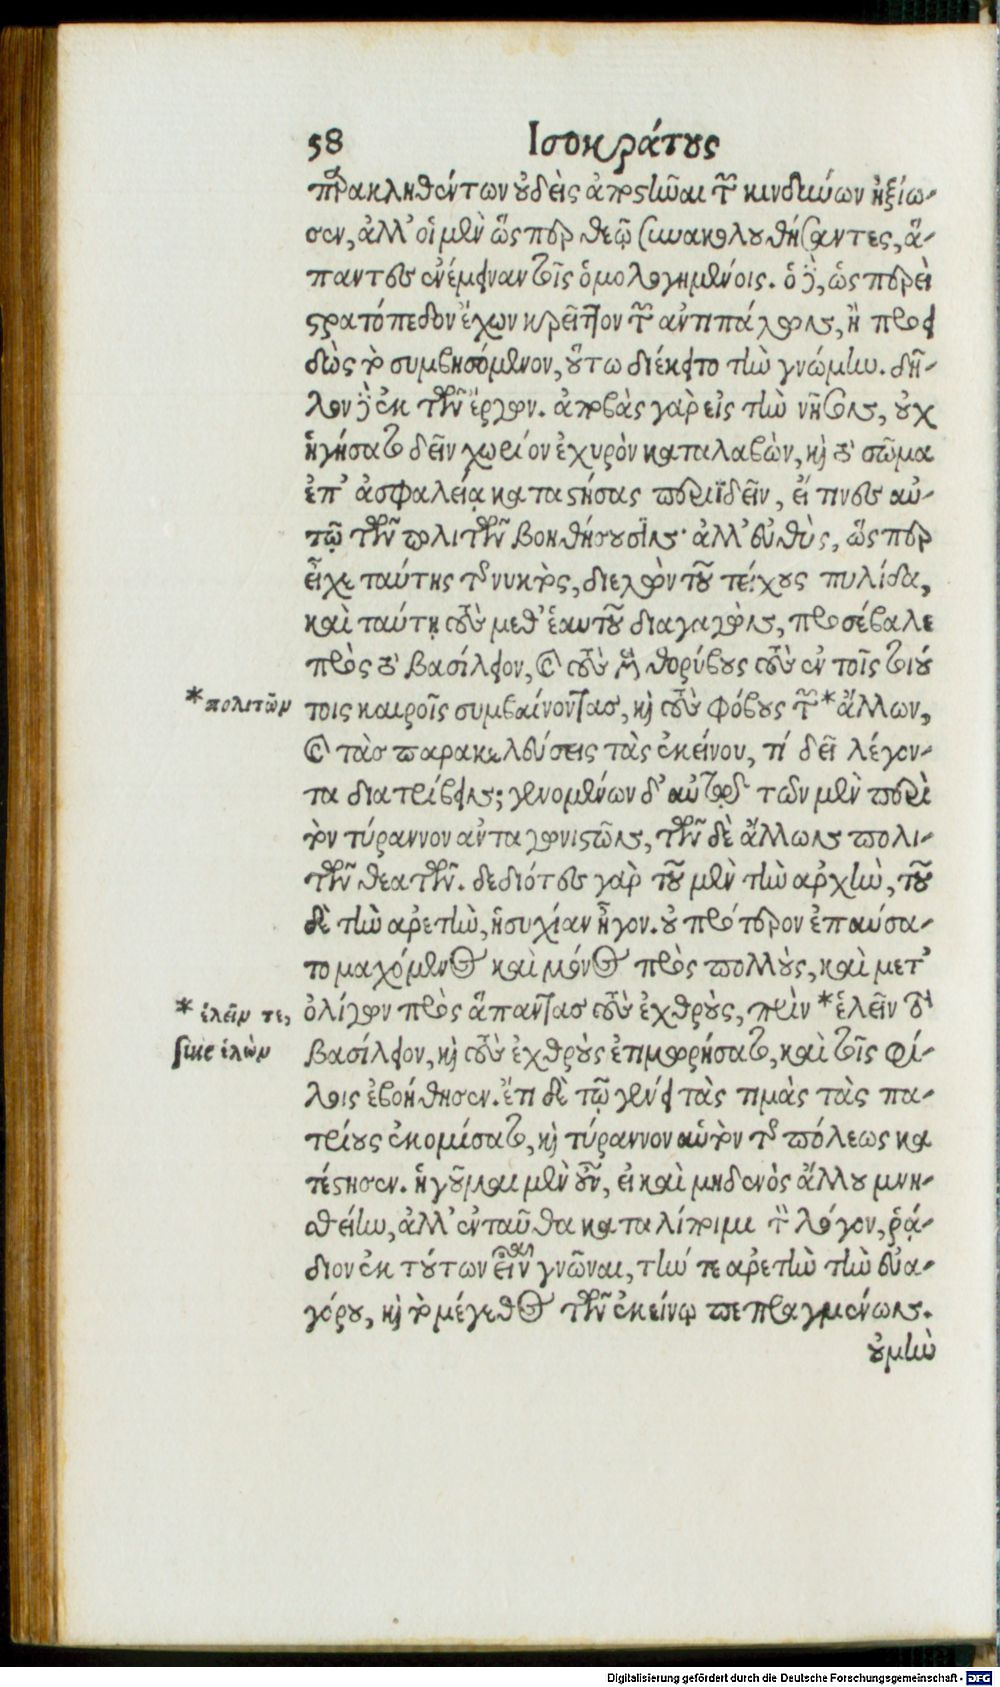 58 Ισοκράτους
παρακληθέντων οὐδεὶς ἀποστῆναι τῶν κινδύνων ἠξίω-
σεν, ἀλλ' οἱ μὲν ὥσπερ θεῷ συνακολουθήσαντες, ἅ-
παντες ἐνέμειναν τοῖς ὁμολογημένοις. ὁ δὲ, ὡσπερεὶ
στρατόπεδον ἔχων κρεῖττον τῶν ἀντιπάλων, ἢ προει
δὼς τὸ συμβησόμενον, οὕτω διέκειτο τὴν γνώμην. δῆ-
λον δὲ ἐκ τῶν ἔργων. ἀποβὰς γὰρ εἰς τὴν νῆσον, οὐχ
ἡγήσατο δεῖν χωρίον ἐχυρὸν καταλαβὼν, καὶ τὸ σῶμα
ἐπ' ἀσφαλείᾳ καταστήσας περιϊδεῖν, εἴ τινες αὐ-
τῷ τῶν πολιτῶν βοηθήσουσιν· ἀλλ' εὐθὺς, ὥσπερ
εἶχε ταύτης τῆς νυκτὸς, διελὼν τοῦ τείχους πυλίδα,
καὶ ταύτῃ τοὺς μεθ' ἑαυτοῦ διαγαγὼν, προσέβαλε
πρὸς τὸ βασίλειον, καὶ τοὺς μὲν θορύβους τοὺς ἐν τοῖς τοιού
*πολιτῶν
τοις καιροῖς συμβαίνοντας, καὶ τοὺς φόβους τῶν *ἄλλων,
καὶ τὰς παρακελεύσεις τὰς ἐκείνου, τί δεῖ λέγον-
τα διατρίβειν; γενομένων δ' αὐτῷ τῶν μὲν περὶ
τὸν τύραννον ἀνταγωνιστῶν, τῶν δὲ ἄλλων πολι-
τῶν θεατῶν. δεδιότες γὰρ τοῦ μὲν τὴν ἀρχὴν, τοῦ
δὲ τὴν ἀρετὴν, ἡσυχίαν ἦγον. οὐ πρότερον ἐπαύσα-
το μαχόμενος καὶ μόνος πρὸς πολλοὺς, καὶ μετ'
* ἑλεῖν τε,
ὀλίγων πρὸς ἅπαντας τοὺς ἐχθροὺς, πρὶν *ἑλεῖν τὸ
siue ἑλὼν
βασίλειον, καὶ τοὺς ἐχθροὺς ἐτιμωρήσατο, καὶ τοῖς φί-
λοις ἐβοήθησεν. ἔτι δὲ τῷ γένει τὰς τιμὰς τὰς πα-
τρίους ἐκομίσατο, καὶ τύραννον αὑτὸν τῆς πόλεως κα
τέστησεν. ἡγοῦμαι μὲν οὖν, εἰ καὶ μηδενὸς ἄλλου μνη-
σθείην, ἀλλ' ἐνταῦθα καταλίποιμι τὸν λόγον, ῥᾴ-
διον ἐκ τούτων εἶναι γνῶναι, τήν τε ἀρετὴν τὴν εὐα-
γόρου, καὶ τὸ μέγεθος τῶν ἐκείνῳ πεπραγμένων.
οὐμὴν
Digitalisierung gefördert durch die Deutsche Forschungsgemeinschaft - DFG